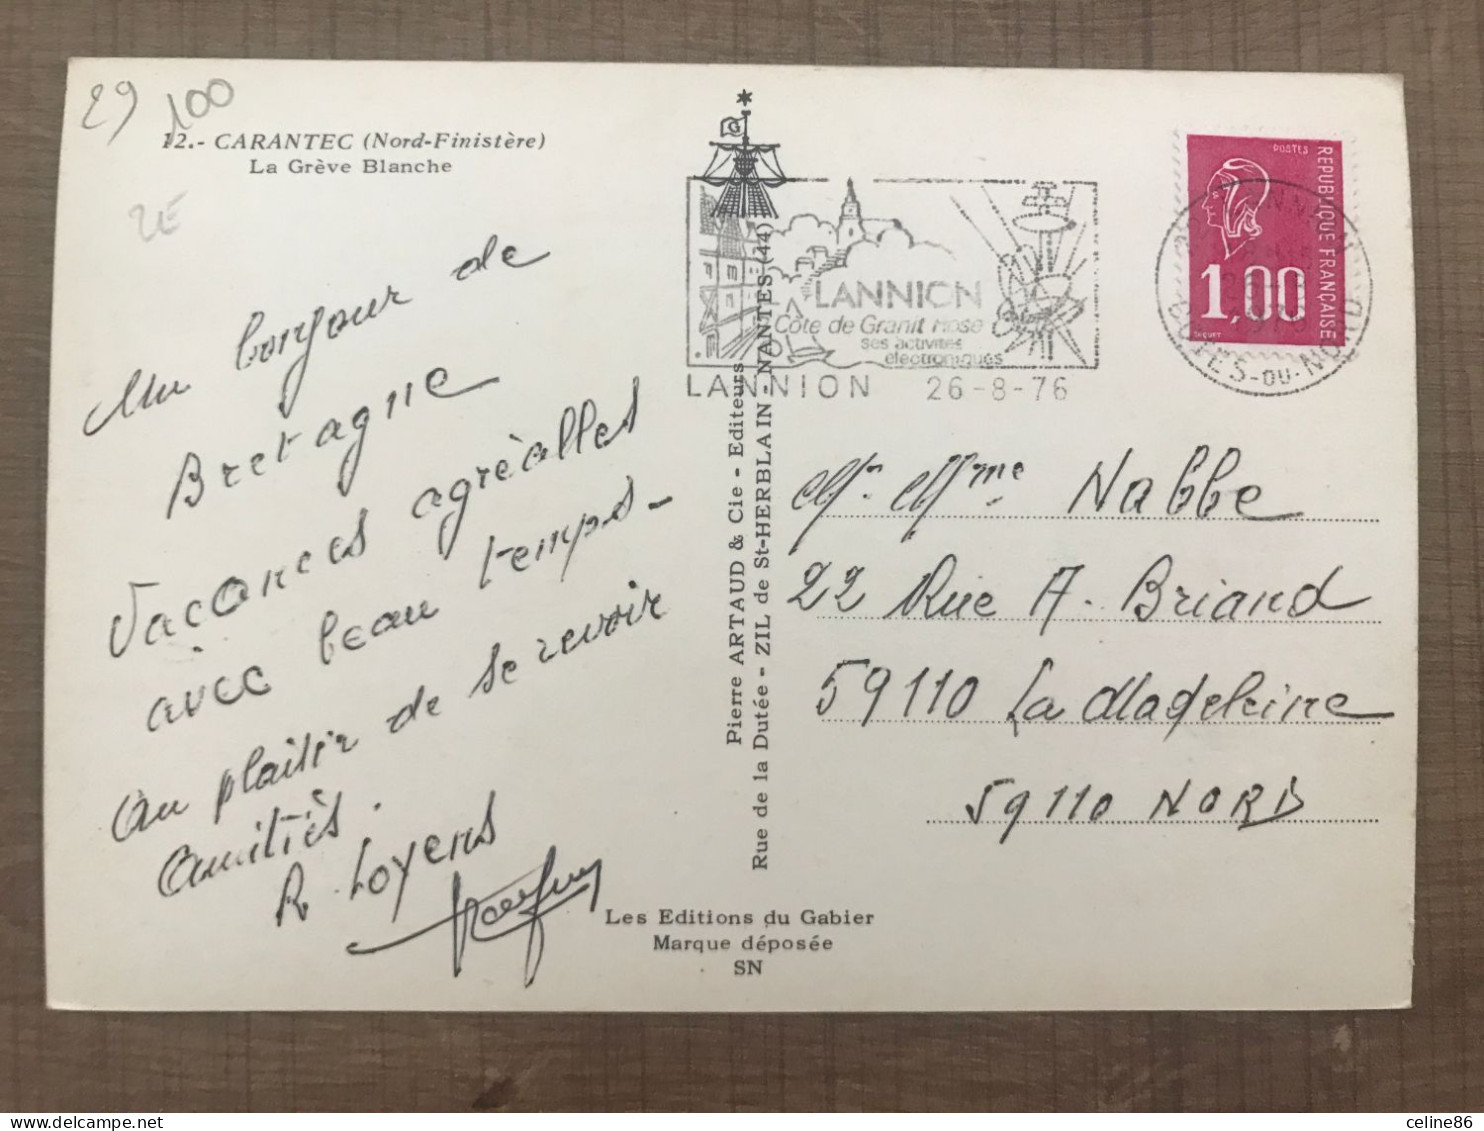 29 100
12.- CARANTEC (Nord-Finistère)
La Grève Blanche
2E
Un bonjour de
Bretagne
Vacances agréables
avec beau temps-
Au plaisir de se revoir
Amitiés.
R. Loyens
LANNION
Côte de Granit Rose
ses activités
électroniques
LANNION 26-8-76
POSTES
REPUBLIQUE FRANÇAISE
1,00
LANNION
COTES-DU-NORD
Mr. Mme Nabbe
22 Rue A. Briand
59110 La Madeleine
59110 NORD
Pierre ARTAUD & Cie - Editeurs
Rue de la Dutée - ZIL de St-HERBLAIN - NANTES (44)
Les Editions du Gabier
Marque déposée
SN
celine86